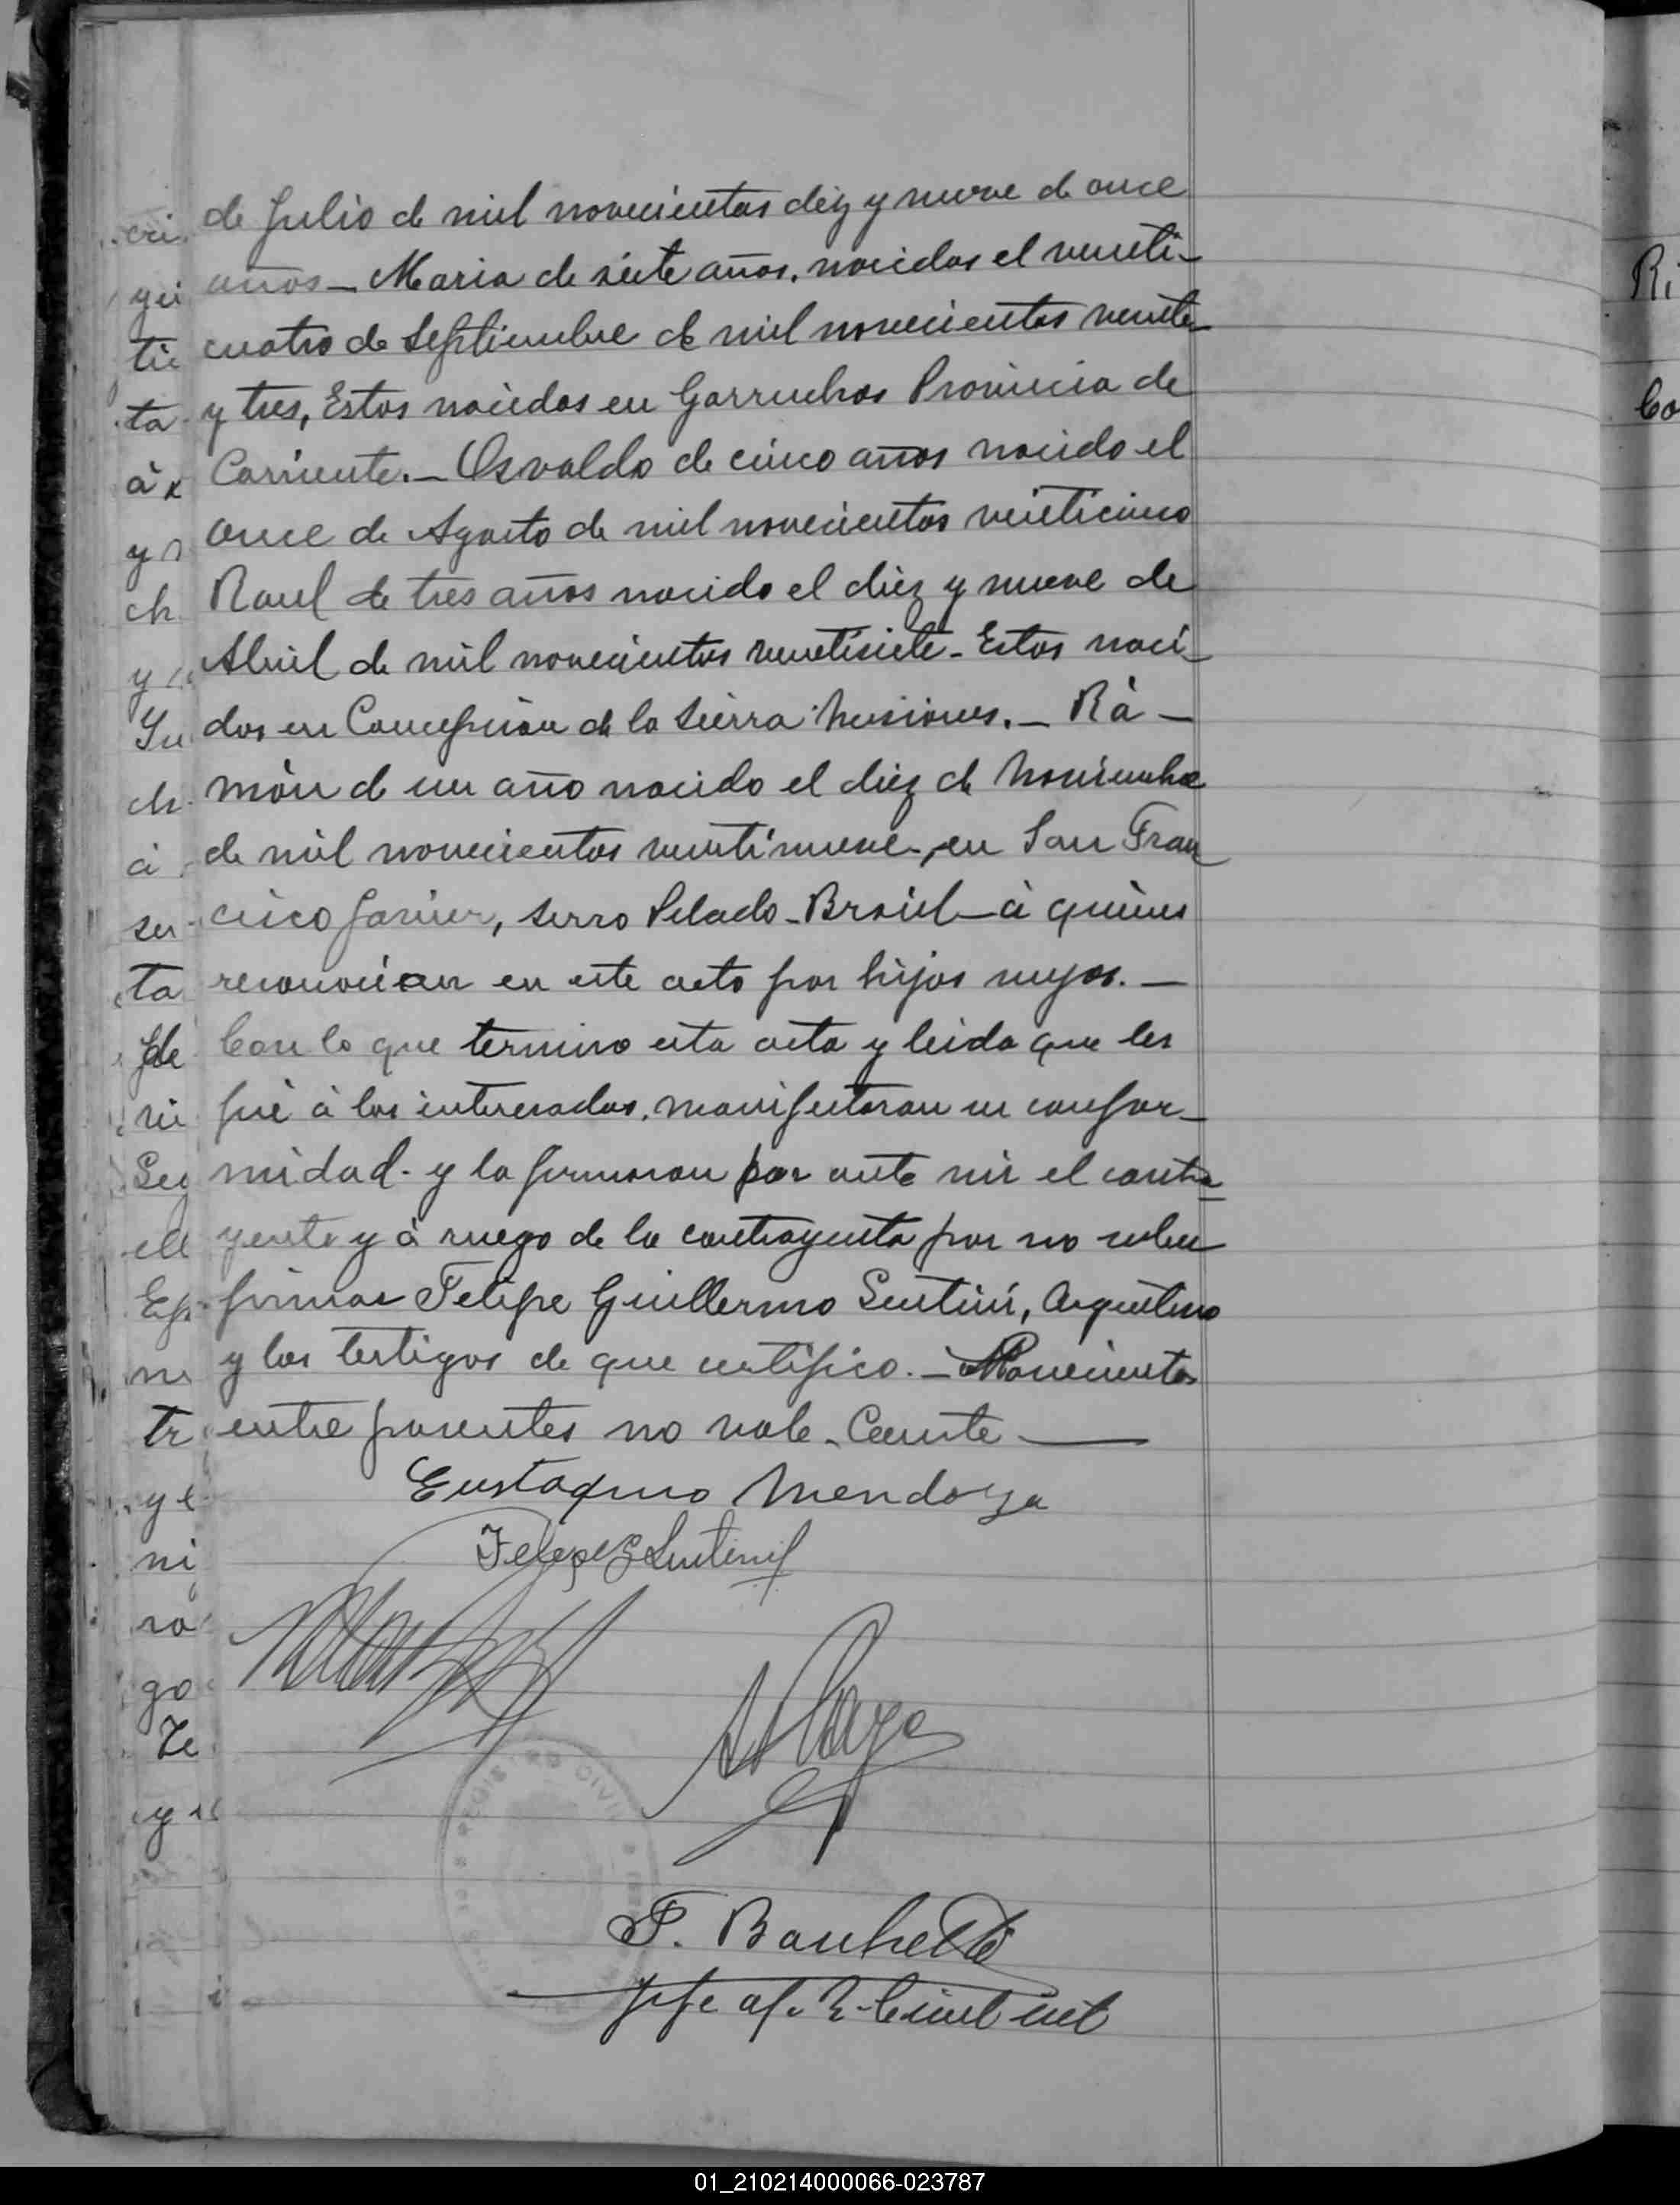 de Julio de mil novecientos diez y nueve de once
años_ Maria de siete años, nacidos el veinti-
cuatro de Septiembre de mil novecientos veinte
y tres, Estos nacidos en Garruchos Provincia de
Corriente._ Osvaldo de cinco años nacido el
once de Agosto de mil novecientos veinticinco
Raul de tres años nacido el diez y nueve de
Abril de mil novecientos veintisiete_ Estos naci-
dos en Concepción de la Sierra Misiones._ Rà-
món de un año nacido el diez de Noviembre
de mil novecientos veintinueve, en San Fran
cisco Javier, Serro Pelado_Brasil_à quienes
reconocian en este acto por hijos suyos._
Con lo que termino esta acta y leida que les
fué à los interesados, manifestaron su confor_
midad. y la firmaron por ante mi el contra
yente y à ruego de la contrayente por no saber
firmar Felipe Guillermo Argentino
y los testigos de que certifico._ Novecientos
entre parentes no vale_
Eustaquio Mendoza
Felipe G
P. Bauhe
Jefe Civil
REGISTRO CIVIL
cri
gui
tie
ta
à
y
ch
y
Su
ch
à
su
ta
de
ri
Seg
ell
Esp
ni
tr
y e
ni
ra
go
Te
y
Ri
Co
01_210214000066-023787